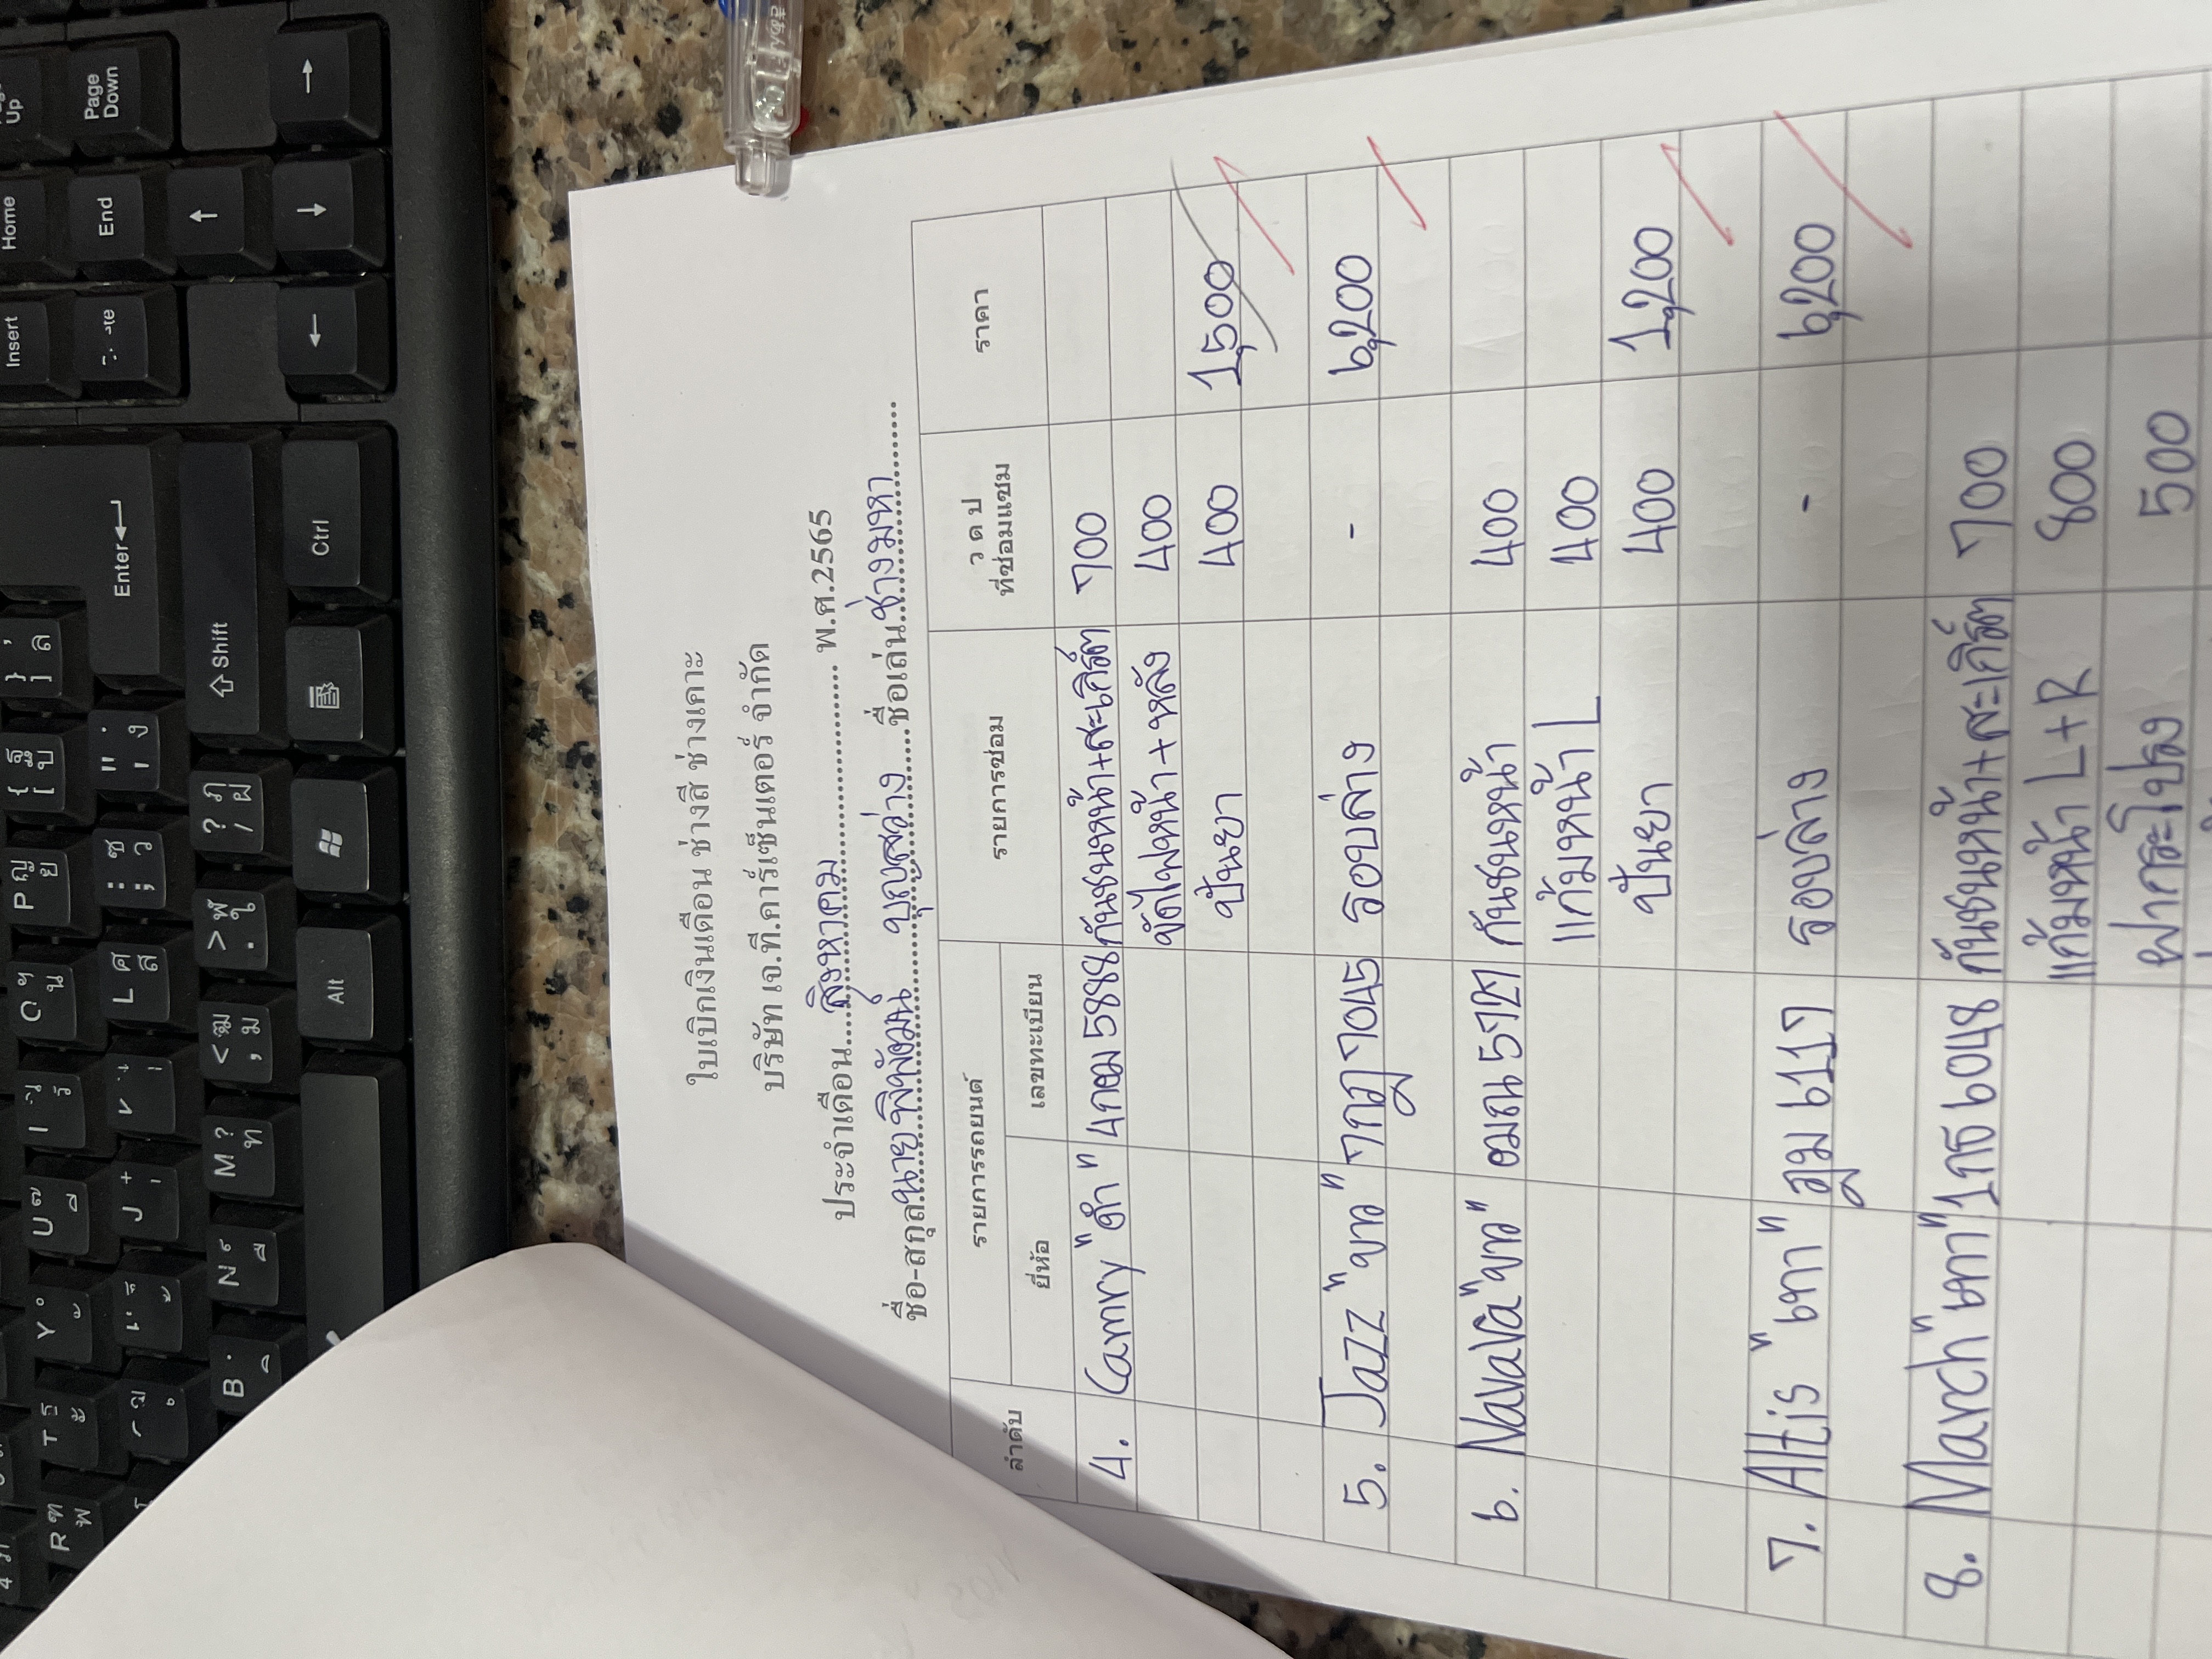 ใบเบิกเงินเดือน ช่างสี ช่างเคาะ
บริษัท เอ.ที.คาร์เซ็นเตอร์ จำกัด
ประจำเดือน...สิงหาคม... พ.ศ.2565
ชื่อ-สกุล นายพิพัฒน์ บุญสว่าง ชื่อเล่น ช่างมหา
ลำดับ รายการรถยนต์ รายการซ่อม ว ด ป ที่ซ่อมแซม ราคา
ยี่ห้อ เลขทะเบียน
4. Camry "ดำ" 4กฌ 5888 กันชนหน้า+สะเกิร์ต 700
ขัดไฟหน้า+หลัง 400
ปั่นยา 400 1,500
5. Jazz "ขาว" 7กฎ 7045 รอบล่าง - 6,200
6. Navara "ขาว" ฒณ 5721 กันชนหน้า 400
แก้มหน้า L 400
ปั่นยา 400 1,200
7. Altis "เทา" ฎม 6117 รอบล่าง - 6,200
8. March "เทา" 1กธ 6048 กันชนหน้า+สะเกิร์ต 700
แก้มหน้า L+R 800
ฝากระโปรง 500
Insert
Home
Page Up
Page Down
End
Enter
Shift
Ctrl
Alt